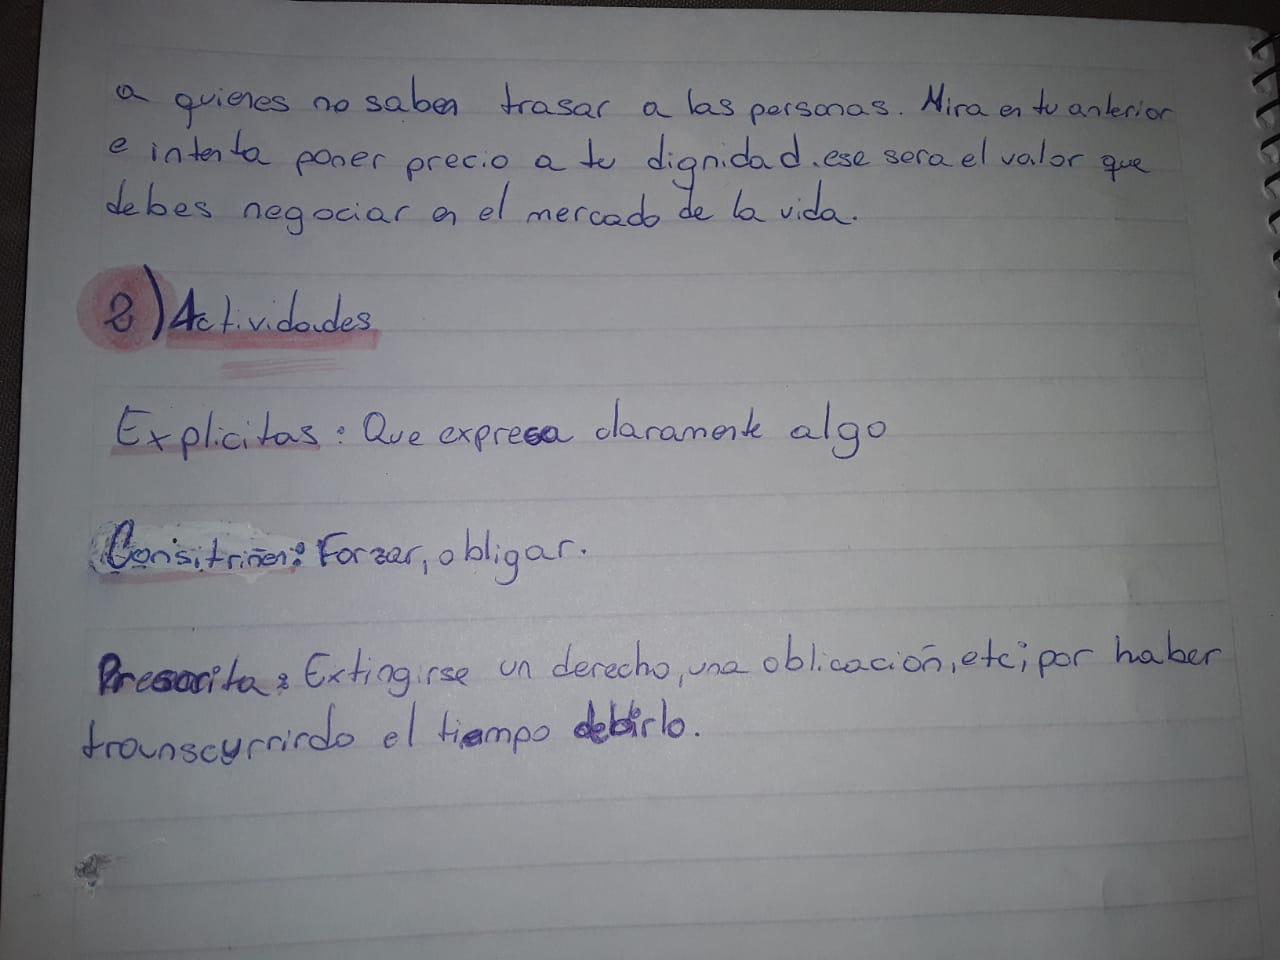 a quienes no saben trasar a las personas. Mira en tu anterior
e intenta poner precio a tu dignidad. ese sera el valor que
debes negociar en el mercado de la vida.
2) Actividades
Explicitas: Que expresa claramente algo
Consitriñen: Forzar, obligar.
Presorita: Extingirse un derecho, una oblicación, etc; por haber
transcurrirdo el tiempo debirlo.